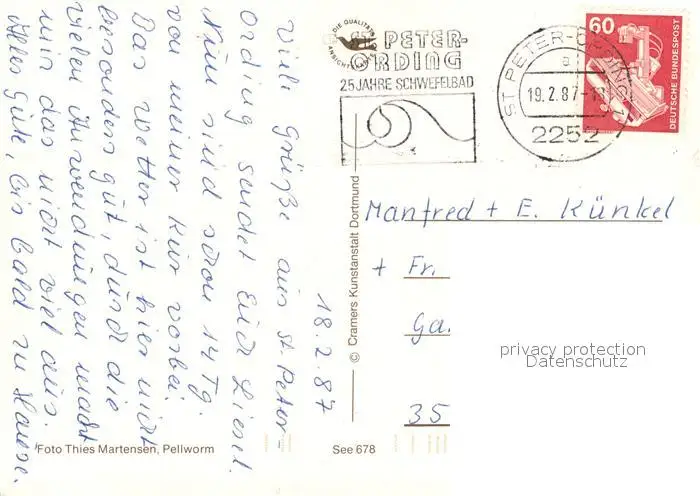 18.2.87
Viele Grüße aus St. Peter-
Ording sendet Euch Liesel.
Nun sind schon 14 Tg.
von meiner Kur vorbei.
Das Wetter ist hier nicht
besonders gut, durch die
vielen Anwendungen macht
mir das nicht viel aus.
Alles gute, bis bald zu Hause.
ST. PETER-
ORDING
25 JAHRE SCHWEFELBAD
ST. PETER-ORDING 1
a
19.2.87-
2252
60
DEUTSCHE BUNDESPOST
Manfred + E. Künkel
+ Fr.
Ga.
35
privacy protection
Datenschutz
© Cramers Kunstanstalt Dortmund
Foto Thies Martensen, Pellworm
See 678